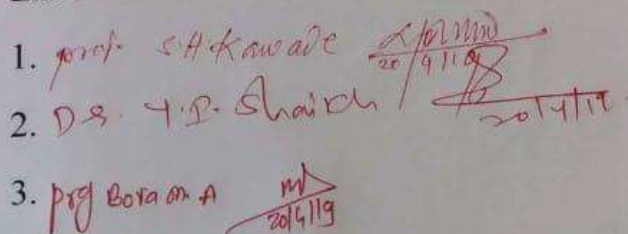 1. prof. S.H. Kawade 20/4/19
2. Dr. Y.P. Shaikh 20/4/19
3. prof Bora m A 20/4/19